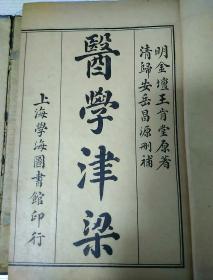 明金壇王肯堂原著
清歸安岳昌源刪補
醫學津梁
上海學海圖書館印行